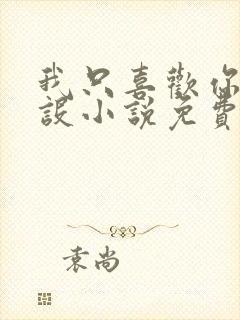 我只喜歡你
設小說免費
袁尚